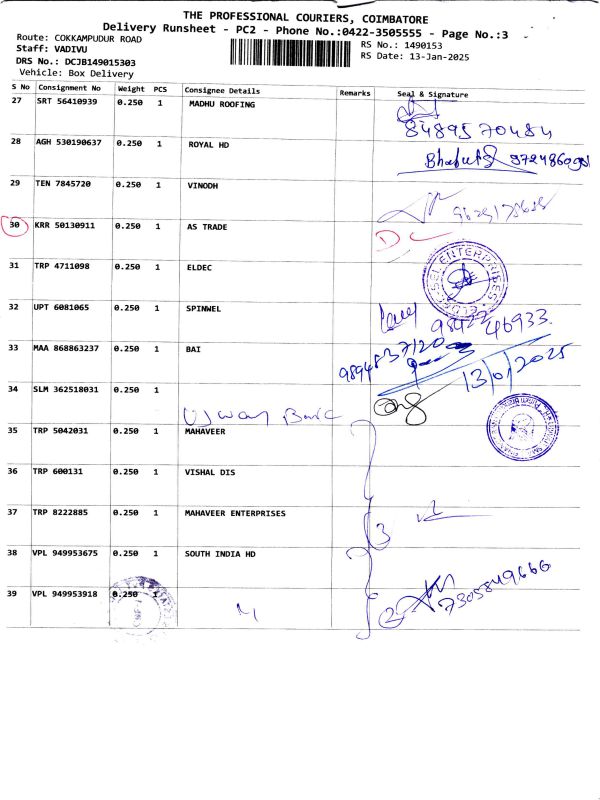 THE PROFESSIONAL COURIERS, COIMBATORE
Delivery Runsheet - PC2 - Phone No.:0422-3505555 - Page No.:3
Route: COKKAMPUDUR ROAD
Staff: VADIVU
DRS No.: DCJB149015303
Vehicle: Box Delivery
RS No.: 1490153
RS Date: 13-Jan-2025
S No Consignment No Weight PCS Consignee Details Remarks Seal & Signature
27 SRT 56410939 0.250 1 MADHU ROOFING
8489570484
28 AGH 530190637 0.250 1 ROYAL HD
29 TEN 7845720 0.250 1 VINODH
30 KRR 50130911 0.250 1 AS TRADE
DC
31 TRP 4711098 0.250 1 ELDEC
32 UPT 6081065 0.250 1 SPINWEL
98422 46933
33 MAA 868863237 0.250 1 BAI
13/01/2025
34 SLM 362518031 0.250 1
35 TRP 5042031 0.250 1 MAHAVEER
36 TRP 600131 0.250 1 VISHAL DIS
37 TRP 8222885 0.250 1 MAHAVEER ENTERPRISES
3
38 VPL 949953675 0.250 1 SOUTH INDIA HD
39 VPL 949953918 0.250 1
2
7305849660